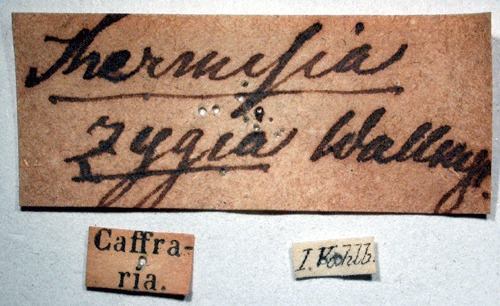 Thermesia
zygia Wallengr.
Caffra-
ria.
I. Wahlb.